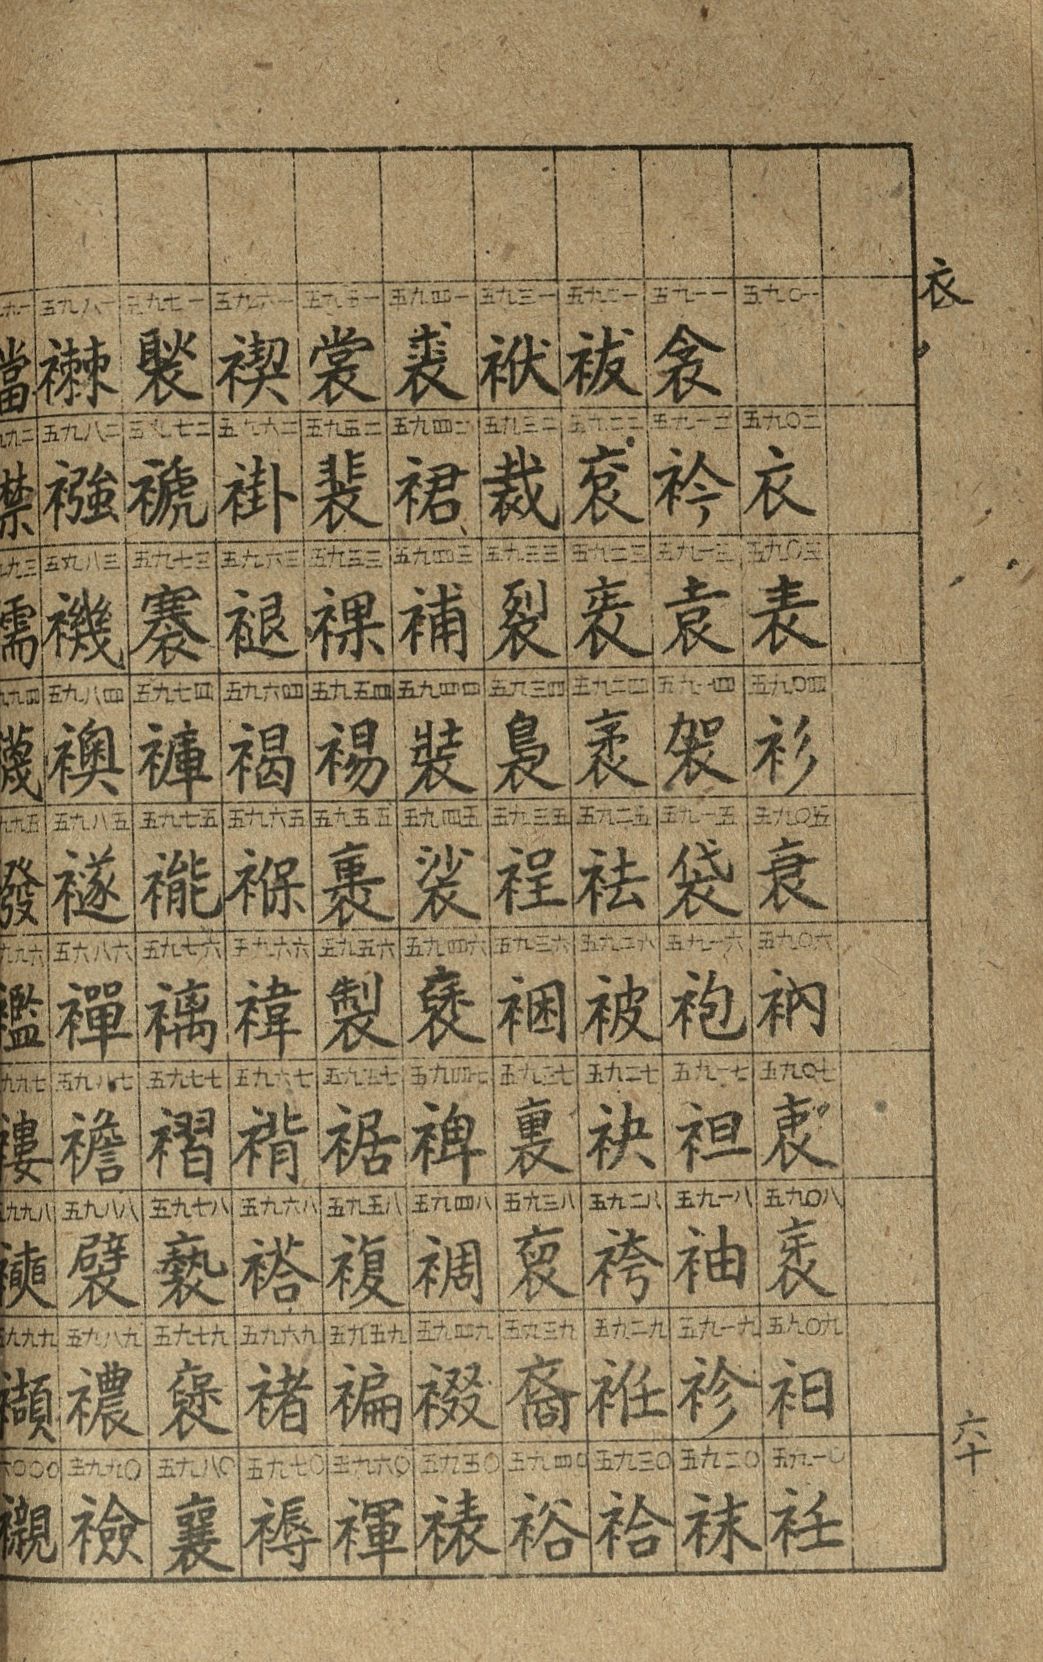 衣
五九〇一
五九〇二 衣
五九〇三 表
五九〇四 衫
五九〇五 衰
五九〇六 衲
五九〇七 衷
五九〇八 衺
五九〇九 衵
五九一〇 衽
五九一一 衾
五九一二 衿
五九一三 袁
五九一四 袈
五九一五 袋
五九一六 袍
五九一七 袒
五九一八 袖
五九一九 袗
五九二〇 袜
五九二一 袚
五九二二 袞
五九二三 袠
五九二四 袤
五九二五 袪
五九二六 被
五九二七 袂
五九二八 袴
五九二九 袵
五九三〇 袷
五九三一 袱
五九三二 裁
五九三三 裂
五九三四 裊
五九三五 裎
五九三六 裍
五九三七 裏
五九三八 裒
五九三九 裔
五九四〇 裕
五九四一 裘
五九四二 裙
五九四三 補
五九四四 裝
五九四五 裟
五九四六
五九四七 裨
五九四八 裯
五九四九 裰
五九五〇 裱
五九五一 裳
五九五二 裴
五九五三 裸
五九五四 裼
五九五五 裹
五九五六 製
五九五七 裾
五九五八 複
五九五九 褊
五九六〇 褌
五九六一 褉
五九六二 褂
五九六三 褪
五九六四 褐
五九六五 褓
五九六六 褘
五九六七 褙
五九六八 褡
五九六九 褚
五九七〇 褥
五九七一 褧
五九七二 褫
五九七三 褰
五九七四 褲
五九七五 褦
五九七六 褵
五九七七 褶
五九七八 褻
五九七九 褒
五九八〇 襄
五九八一 襋
五九八二 襁
五九八三
五九八四 襖
五九八五 襚
五六八六 襌
五九八七 襜
五九八八 襞
五九八九 襛
五九九〇 襝
九一 襠
九九二 襟
九九三 襦
九九四 襪
九九五 襏
九九六 襤
九九七 褸
五九九八
五九九九 襭
六〇〇〇 襯
六十